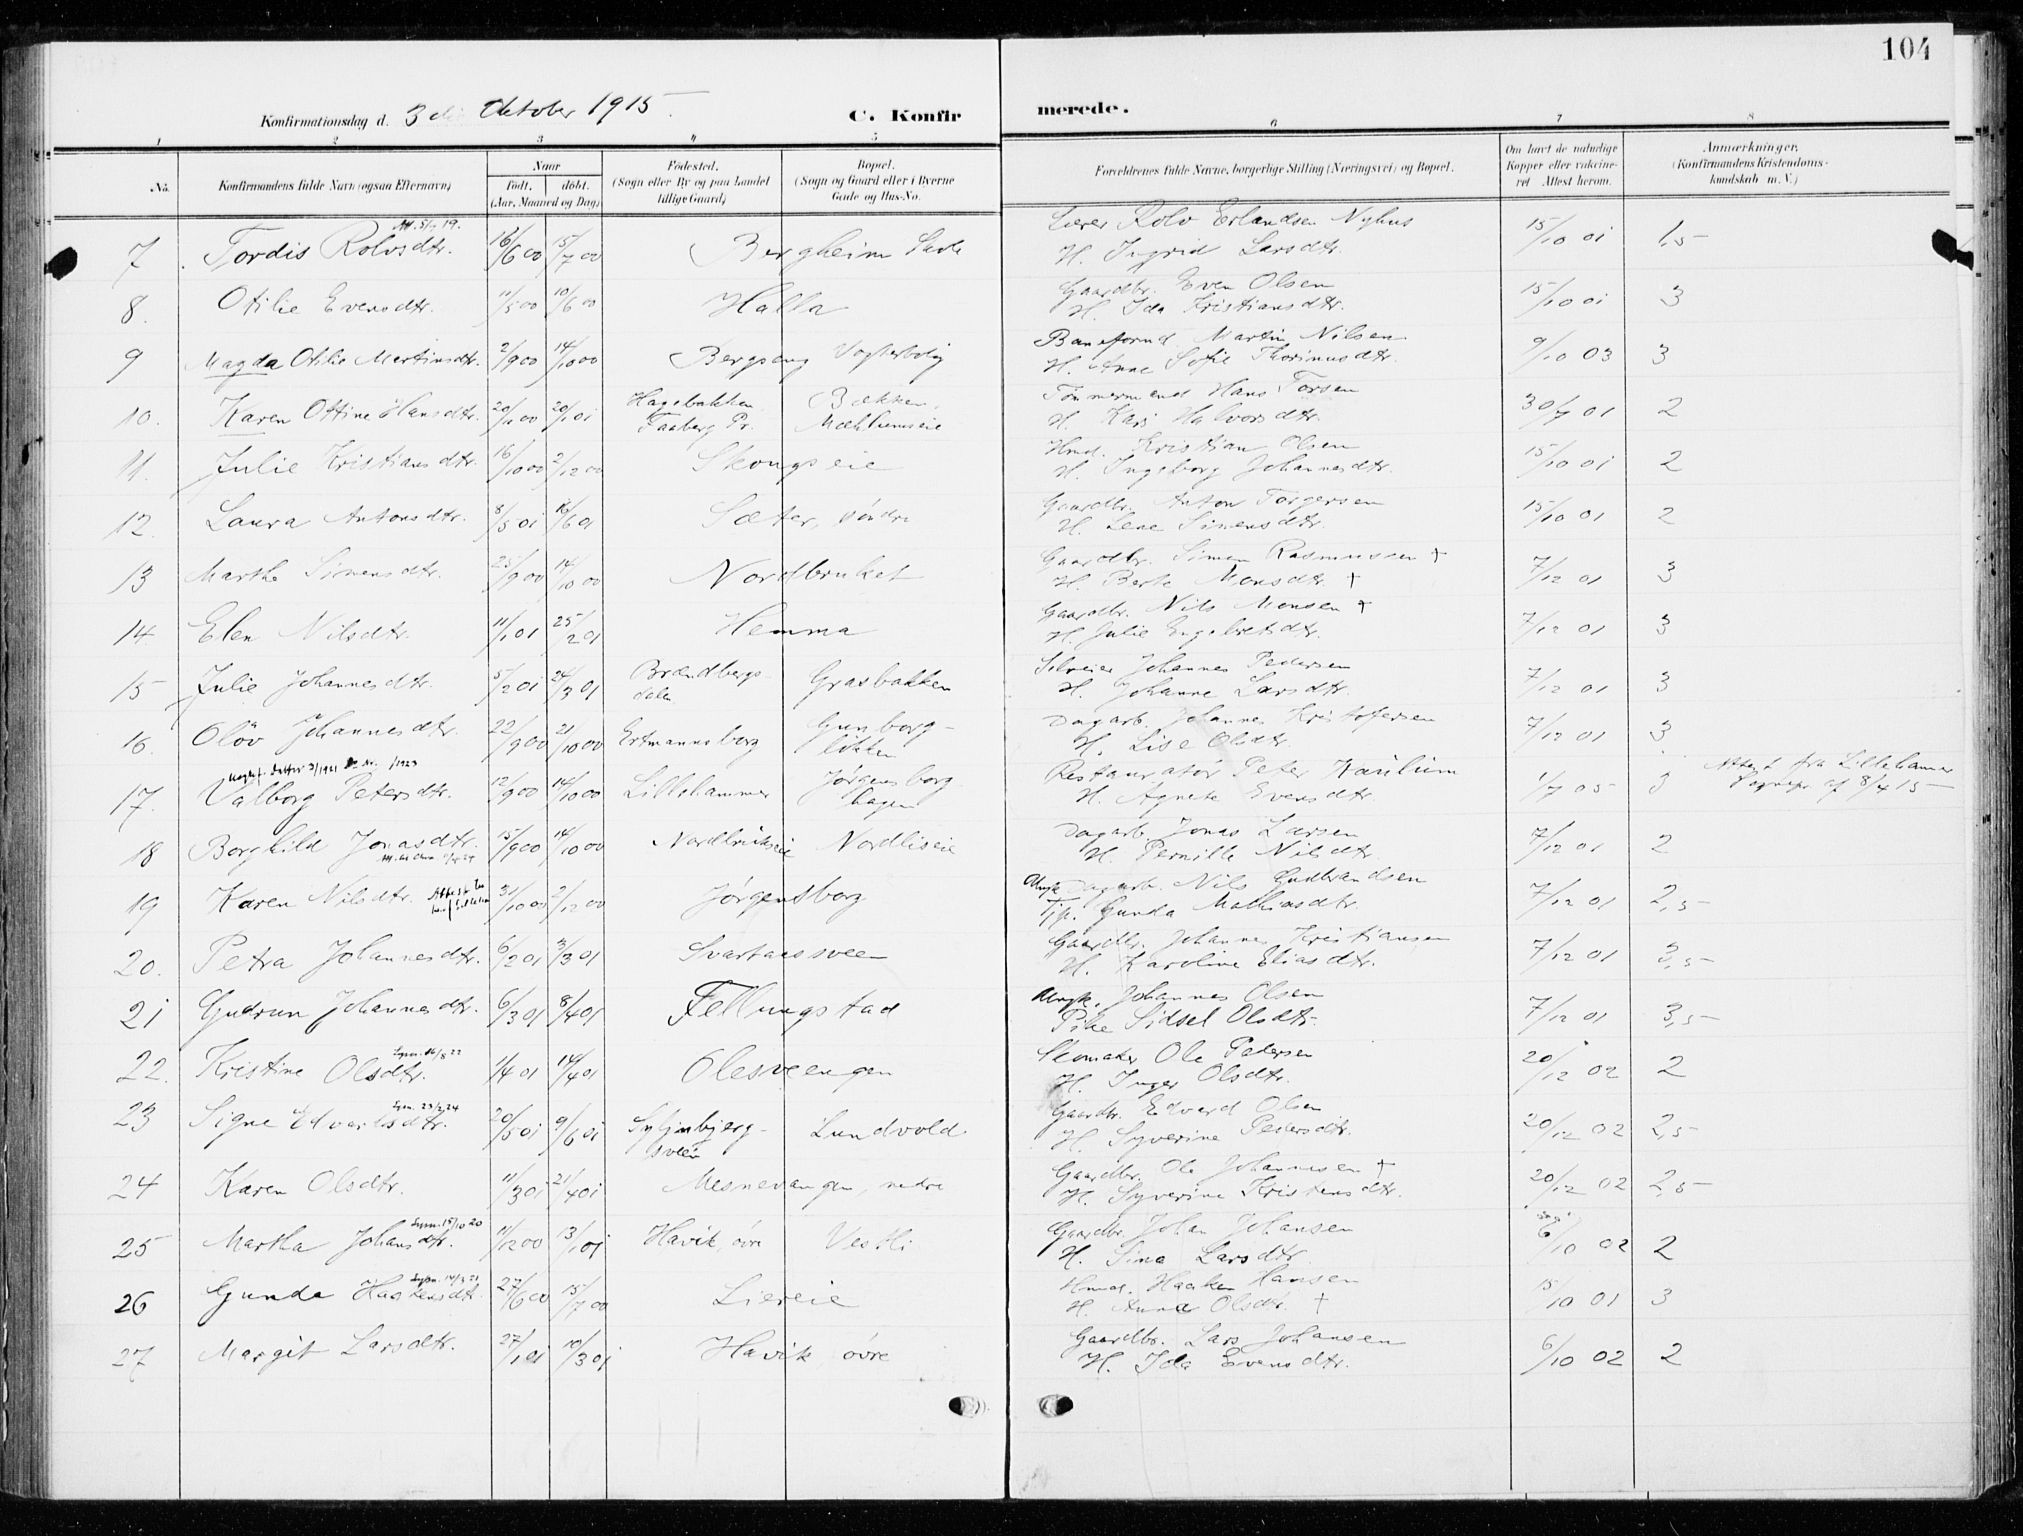 104
Konfirmationsdag d. 3 Oktober 1915
C. Konfirmerede.
1 2 3 4 5 6 7 8
No. Konfirmandens fulde Navn (ogsaa Efternavn) Naar født, døbt. (Aar, Maaned og Dag) Fødested. (Sogn eller By og paa Landet tillige Gaard) Bopæl. (Sogn og Gaard eller i Byerne Gade og Hus-No.
Forældrenes fulde Navne, borgerlige Stilling (Næringsvei) og Bopæl. Om havt de naturlige Kopper eller vaccineret Attest herom. Anmærkninger, (Konfirmandens Kristendomskundskab m. V.)
7 Tordis Rolvsdtr. 16/6 00 15/7 00 Bergheim Lærer Rolv Erlandsen Nyhus 15/10 01 1,5
H. Ingrid Larsdtr.
8. Otilie Evensdtr. 11/5 00 10/6 00 Halla Gaardbr. Even Olsen 15/10 01 3
H. Ida Kristiansdtr.
9 Magda Otilie Martinsdtr. 2/9 00 14/10 00 Bergseng Vogterbolig Baneformd. Martin Nilsen 9/10 03 3
H. Anne Sofie Thorinusdtr.
10. Karen Ottine Hansdtr. 20/1 00 20/1 01 Hagebakken Faaberg Pr. Bækken, Mæhlumseie Tømmermand Hans Torsen 30/7 01 2
H. Kari Halvorsdtr.
11. Julie Kristiansdtr. 16/10 00 2/12 00 Skougseie Hmd. Kristian Olsen 15/10 01 2
H. Ingeborg Johannesdtr.
12. Laura Antonsdtr. 8/5 01 16/6 01 Sæter, søndre Gaardbr. Anton Torgersen 15/10 01 2
H. Lene Simensdtr.
13 Marthe Simensdtr. 25/9 00 14/10 00 Nordbruket Gaardbr. Simen Rasmussen + 7/12 01 3
H. Berte Monsdtr. +
14. Elen Nilsdtr. 11/1 01 25/2 01 Hemma Gaardbr. Nils Monsen + 7/12 01 3
H. Julie Engebretsdtr.
15 Julie Johannesdtr. 5/2 01 24/3 01 Brændbergsdalen Grasbakken Selveier Johannes Pedersen 7/12 01 3
H. Johanne Larsdtr.
16. Oløv Johannesdtr. 22/9 00 21/10 00 Ertmannsborg Gunborglökken Dagarb. Johannes Kristofersen 7/12 01 3
H. Lise Olsdtr.
17. Valborg Petersdtr. 12/9 00 14/10 00 Lillehammer Jørgensborghagen Restauratør Peter Kaulum 1/7 05 3 Attest fra Lillehammer Sognepr. af 8/4 15
H. Agnete Evensdtr.
18 Borghild Jonasdtr. 15/9 00 14/10 00 Nordlien Nordliseie Dagarb. Jonas Larsen 7/12 01 2
H. Pernille Nilsdtr.
19 Karen Nilsdtr. 31/10 00 2/12 00 Jørgensborg Ungk. Dagarb. Nils Gudbrandsen 7/12 01 2,5
Tjp. Gunda Mathiasdtr.
20. Petra Johannesdtr. 6/2 01 3/3 01 Svartaassveen Gaardbr. Johannes Kristiansen 7/12 01 3,5
H. Karoline Eliasdtr.
21 Gudrun Johannesdtr. 6/3 01 8/4 01 Fellungstad Ungk. Johannes Olsen 7/12 01 3,5
Pike Sidsel Olsdtr.
22. Kristine Olsdtr. 1/4 01 14/4 01 Olesveengen Skomaker Ole Pedersen 20/12 02 2
H. Inger Olsdtr.
23 Signe Edvardsdtr. 20/5 01 9/6 01 Lundvold Gaardbr. Edvard Olsen 20/12 02 2,5
H. Syverine Pedersdtr.
24 Karen Olsdtr. 11/3 01 21/4 01 Mesnevangen, nedre Gaardbr. Ole Johannesen + 20/12 02 2,5
H. Syverine Kristensdtr.
25 Martha Johansdtr. 11/12 00 13/1 01 Havik, øvre Vestli Gaardbr. Johan Johansen 6/10 02 2
H. Sina Larsdtr.
26 Gunda Haakensdtr. 27/6 00 15/7 00 Liereie Hmd. Haaken Hansen 15/10 01 3
H. Anne Olsdtr. +
27 Margit Larsdtr. 27/1 01 10/3 01 Havik øvre Gaardbr. Lars Johansen 6/10 02 2
H. Ida Evensdtr.